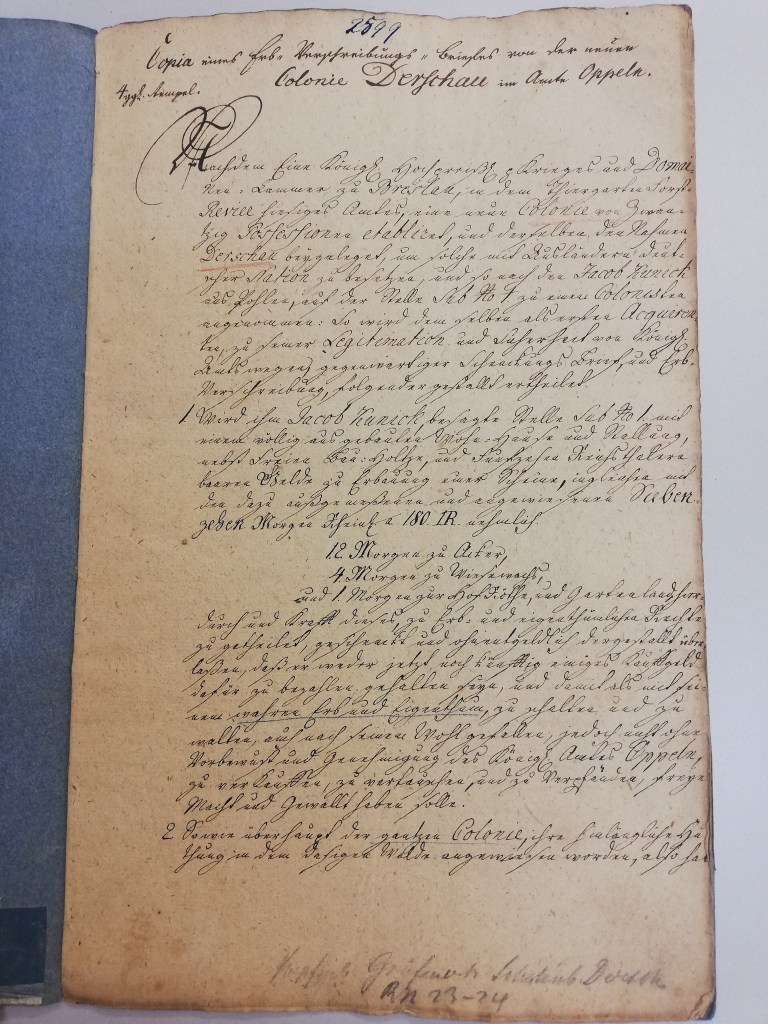 2599
Copia eines Erb-Verschreibungs-Briefes von der neuen
Colonie Derschau im Amte Oppeln.
4 ggl. Stempel.
Nachdem Eine Königl. Hochpreißl. Krieges und Domai-
nen-Cammer zu Breslau, in dem Thiergarten Forst-
Revier hiesiges Amtes, eine neue Colonie von Zwan-
tzig Possessionen etabliret, und derselben, den Nahmen
Derschau beygeleget, um solche mit Ausländern deut-
scher Nation zu besetzen, und so nach den Jacob Kunick
aus Pohlen, auf der Stelle Sub No 1 zu einen Colonisten
angenommen: So wird dem selben als ersten Acquiren-
ten, zu seiner Legitimation und Sicherheit von Königl.
Amts wegen gegenwärtiger Schenckungs Brief, und Erb-
Verschreibung, folgender gestallt ertheilet.
1. Wird ihm Jacob Kunick, besagte Stelle Sub No 1. mit
einem völlig aus gebauten Wohn-Hause und Stallung,
nebst Freien Bau-Holtze, und Funfzehn Reichsthalern
baaren Gelde zu Erbauung einer Scheune, ingleichen mit
den dazu ausgemeßenen und angewiesenen Sieben-
zehen Morgen Rheinl. a 180 □R. nehmlich
12. Morgen zu Acker,
4. Morgen zu Wiesewachs,
und 1. Morgen zur Hof Röthe, und Gartenland hier-
durch und Krafft dieses, zu Erb- und eigenthümlichen Rechte
zu getheilet, geschenckt und ohnentgeldlich dergestallt über-
laßen, daß er weder jetzt noch künfftig einiges Kauffgeld
dafür zu bezahlen gehalten seyn, und damit als mit sei-
nem wahren Erb und Eigenthum, zu schalten und zu
walten, auch nach seinem Wohlgefallen, jedoch nicht ohne
Vorbewust und Genehmigung des Königl. Amtes Oppeln,
zu verkauffen, zu vertauschen, und zu Verpfänden, freye
Macht und Gewallt haben solle.
2. So wie überhaupt der gantzen Colonie, ihre hinlängliche Hü-
thung in dem dasigen Walde angewiesen worden, also ha-
RN 23-24